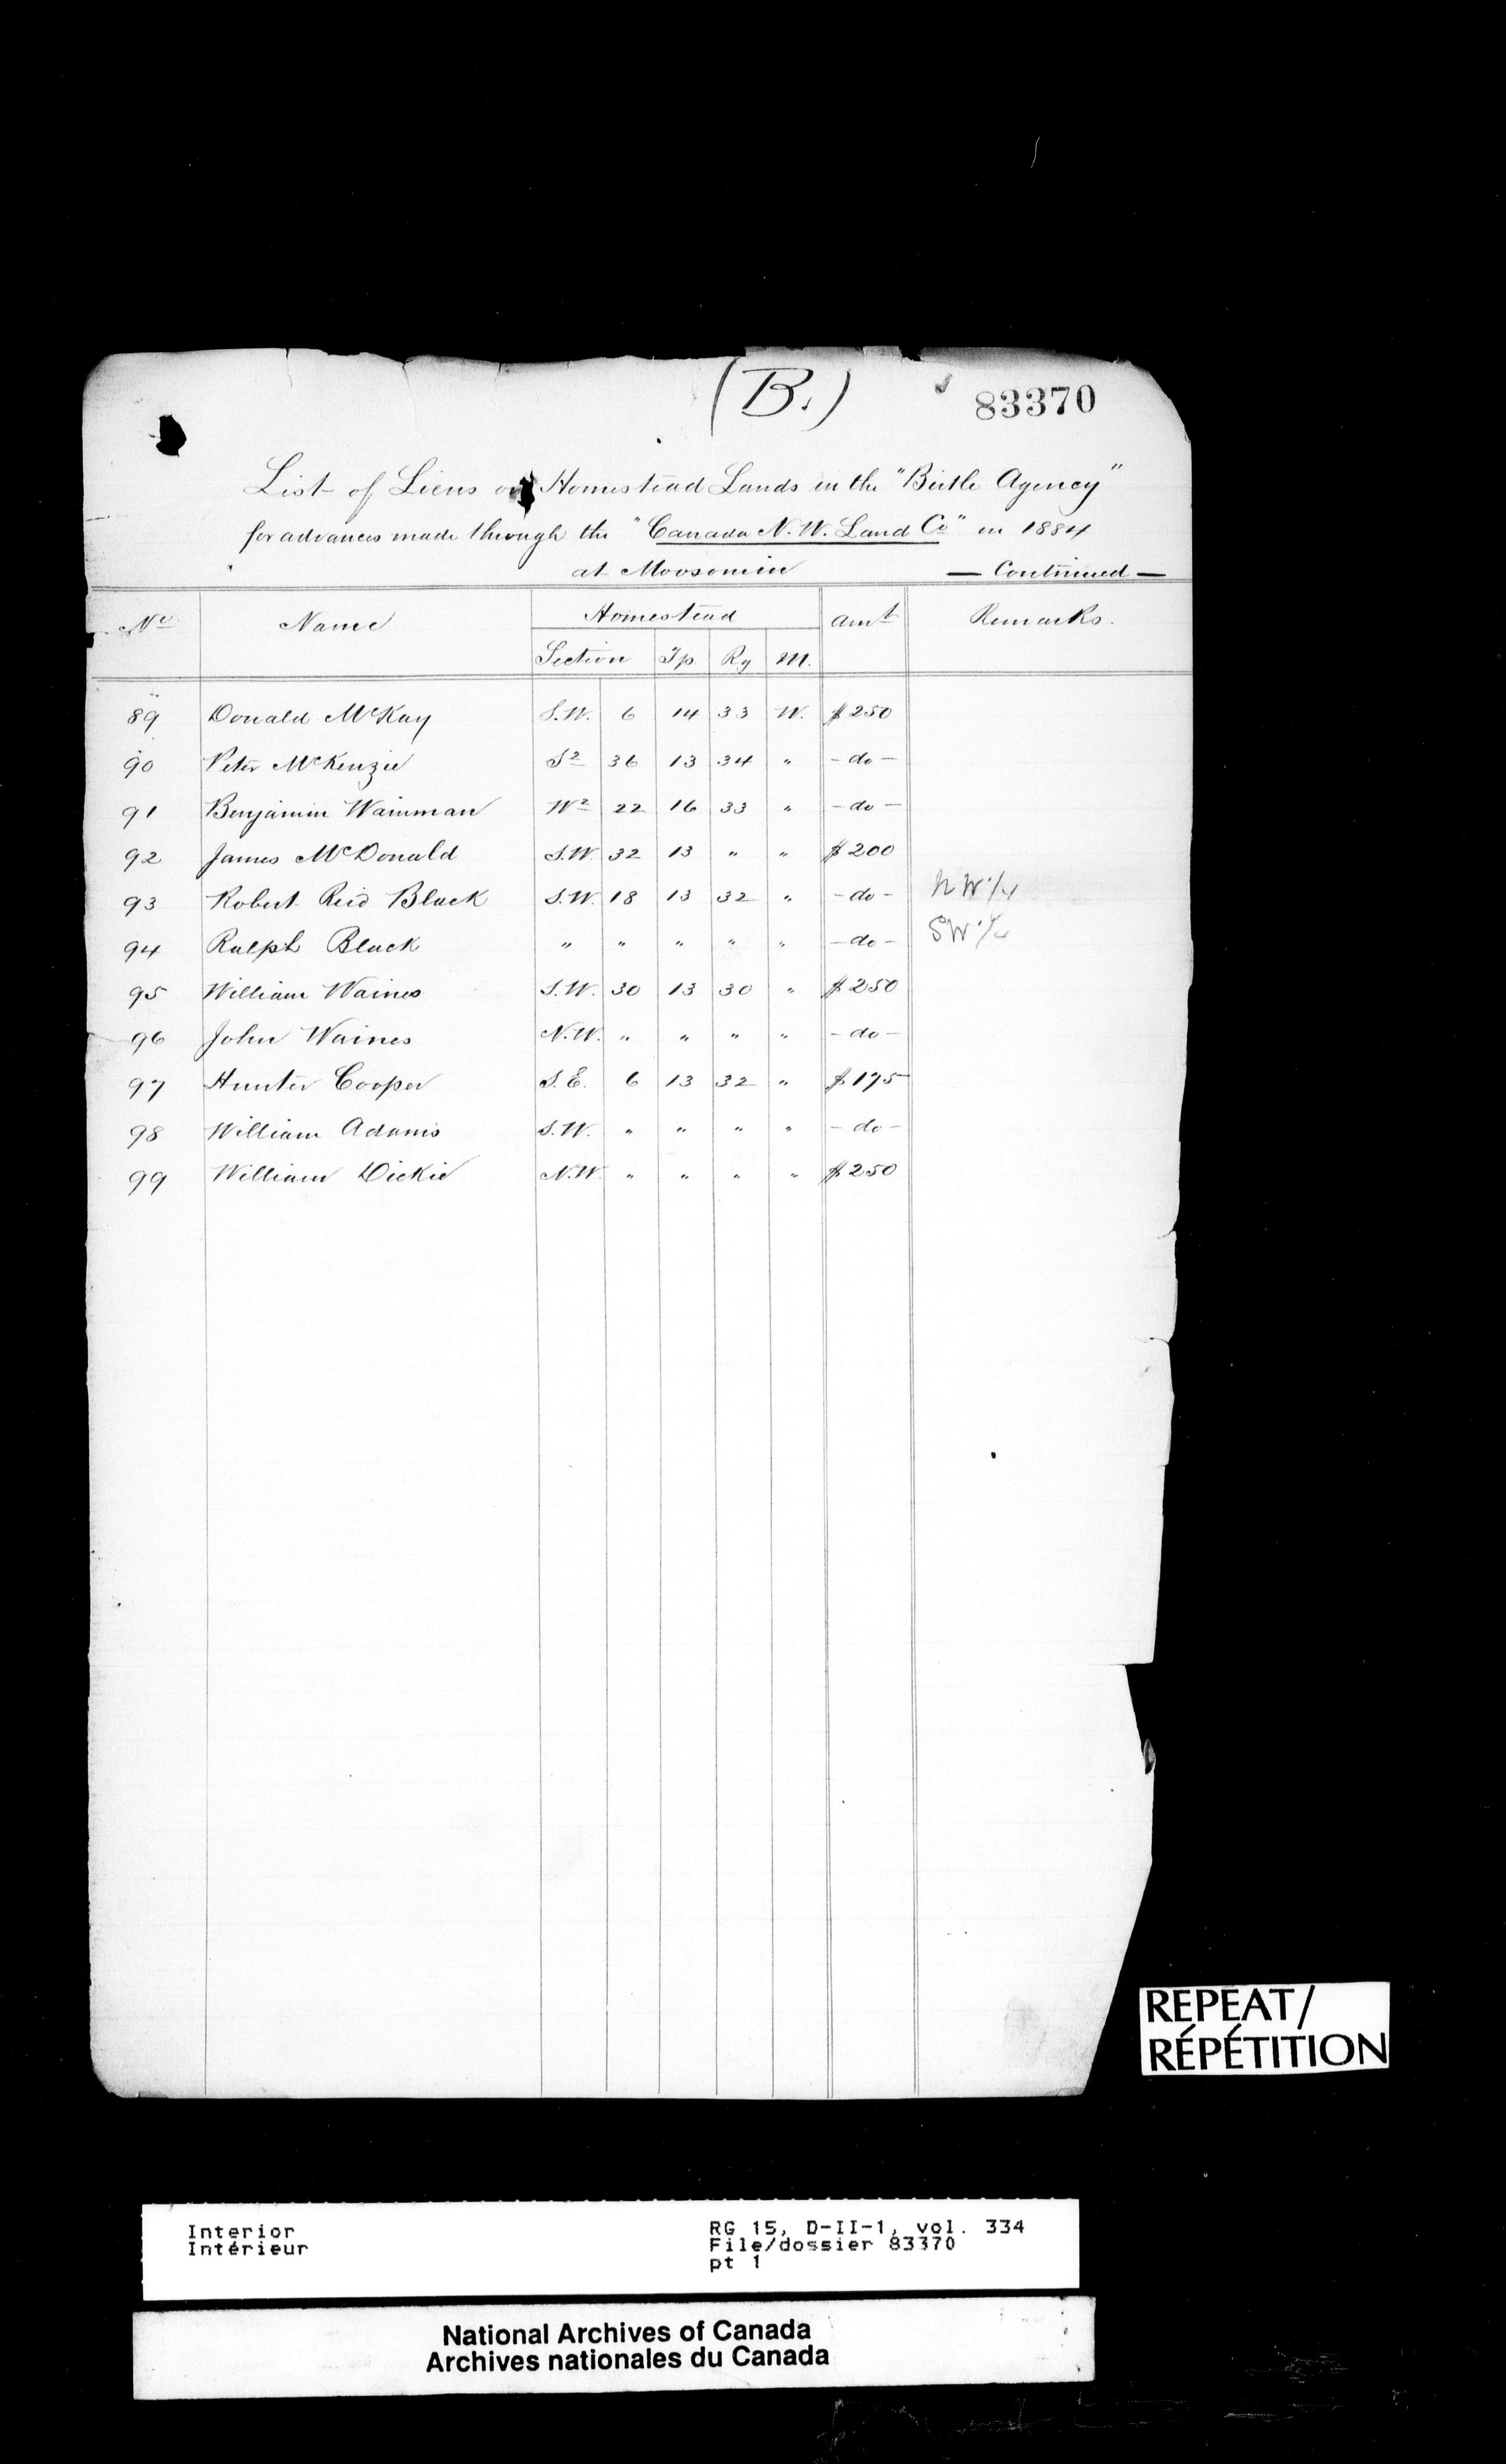 (B.)
83370
List of Liens on Homestead Lands in the "Birtle Agency"
for advances made through the "Canada N. W. Land Co" in 1884
at Moosomin — Continued —
No Name Homestead Amt Remarks.
Section Tp. Rg M.
89 Donald McKay S.W. 6 14 33 W. $250
90 Peter McKenzie S2 36 13 34 " - do -
91 Benjamin Wainman W2 22 16 33 " - do -
92 James McDonald S.W. 32 13 " " $200
93 Robert Reid Black S.W. 18 13 32 " - do - NW 1/4
94 Ralph Black " " " " " - do - SW 1/4
95 William Waines S.W. 30 13 30 " $250
96 John Waines N.W. " " " " - do -
97 Hunter Cooper S.E. 6 13 32 " $175
98 William Adams S.W. " " " " - do -
99 William Dickie N.W. " " " " $250
REPEAT/
RÉPÉTITION
Interior RG 15, D-II-1, vol. 334
Intérieur File/dossier 83370
pt 1
National Archives of Canada
Archives nationales du Canada